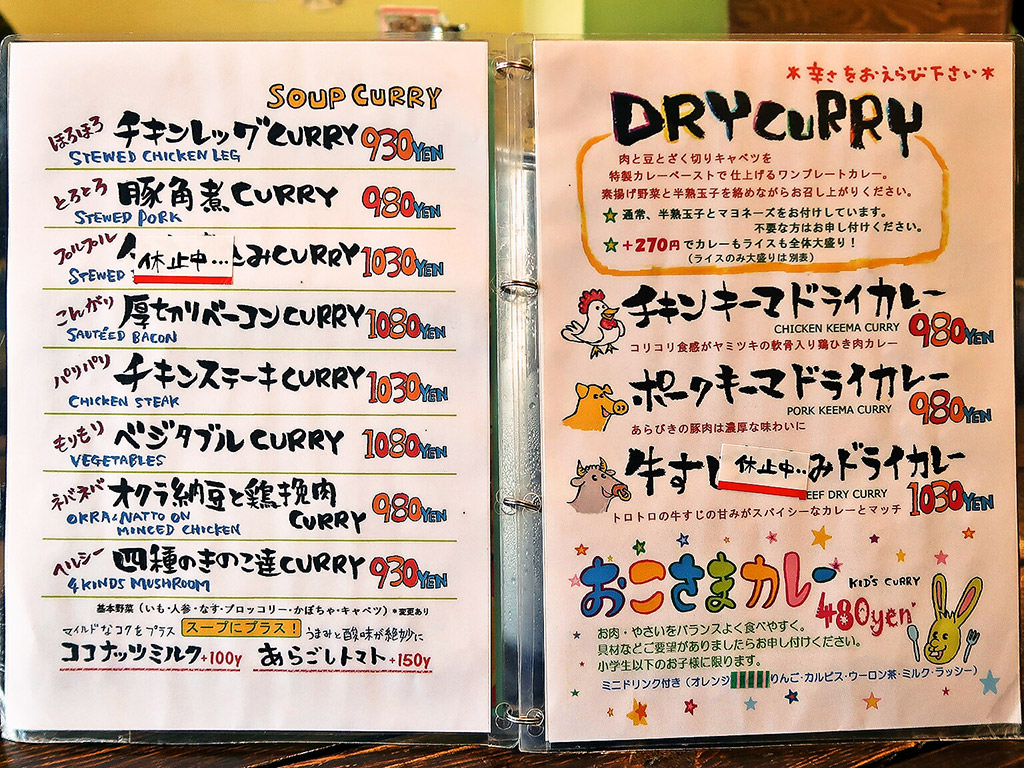 SOUP CURRY
ほろほろ チキンレッグCURRY 930YEN
STEWED CHICKEN LEG
とろとろ 豚角煮CURRY 980YEN
STEWED PORK
プルプル 休止中… みCURRY 1030YEN
STEWED
こんがり 厚切りベーコンCURRY 1080YEN
SAUTÉED BACON
パリパリ チキンステーキCURRY 1030YEN
CHICKEN STEAK
もりもり ベジタブルCURRY 1080YEN
VEGETABLES
ネバネバ オクラ納豆と鶏挽肉
CURRY 980YEN
OKRA & NATTO ON
MINCED CHICKEN
ヘルシー 四種のきのこ達CURRY 930YEN
4 KINDS MUSHROOM
基本野菜（いも・人参・なす・ブロッコリー・かぼちゃ・キャベツ）*変更あり
マイルドなコクをプラス スープにプラス！ うまみと酸味が絶妙に
ココナッツミルク+100y あらごしトマト+150y
*辛さをおえらび下さい*
DRY CURRY
肉と豆とざく切りキャベツを
特製カレーペーストで仕上げるワンプレートカレー。
素揚げ野菜と半熟玉子を絡めながらお召し上がりください。
☆通常、半熟玉子とマヨネーズをお付けしています。
不要な方はお申し付けください。
☆+270円でカレーもライスも全体大盛り！
（ライスのみ大盛りは別表）
チキンキーマドライカレー
CHICKEN KEEMA CURRY 980YEN
コリコリ食感がヤミツキの軟骨入り鶏ひき肉カレー
ポークキーマドライカレー
PORK KEEMA CURRY 980YEN
あらびきの豚肉は濃厚な味わいに
牛すじ 休止中… みドライカレー
EEF DRY CURRY 1030YEN
トロトロの牛すじの甘みがスパイシーなカレーとマッチ
おこさまカレー KID'S CURRY
480yen
お肉・やさいをバランスよく食べやすく。
具材などご要望がありましたらお申し付けください。
小学生以下のお子様に限ります。
ミニドリンク付き（オレンジ りんご・カルピス・ウーロン茶・ミルク・ラッシー）